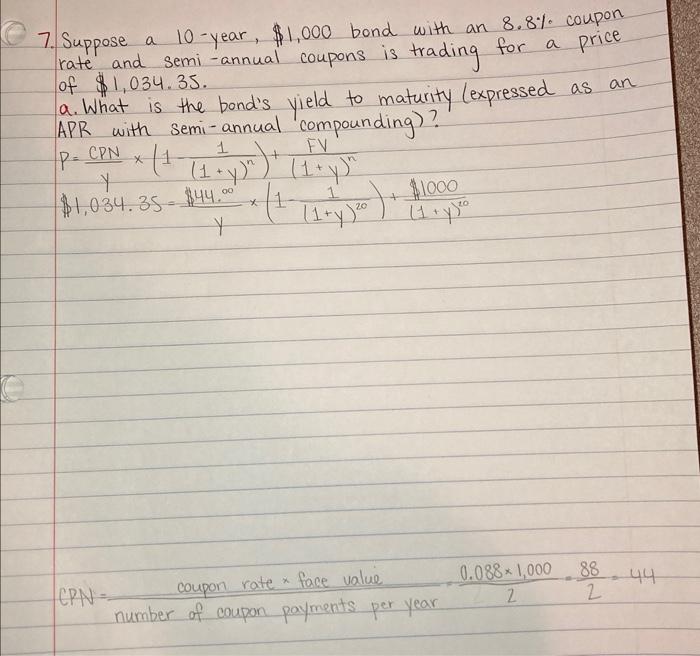 7. Suppose a 10-year, $1,000 bond with an 8.8% coupon
rate and semi-annual coupons is trading for a price
of $1,034.35.
a. What is the bond's yield to maturity (expressed as an
APR with semi-annual compounding)?
P = CPN/y × (1 - 1/(1+y)^n) + FV/(1+y)^n
$1,034.35 = $44.00/y × (1 - 1/(1+y)^20) + $1000/(1+y)^20
CPN = coupon rate × face value / number of coupon payments per year = 0.088×1,000/2 = 88/2 = 44